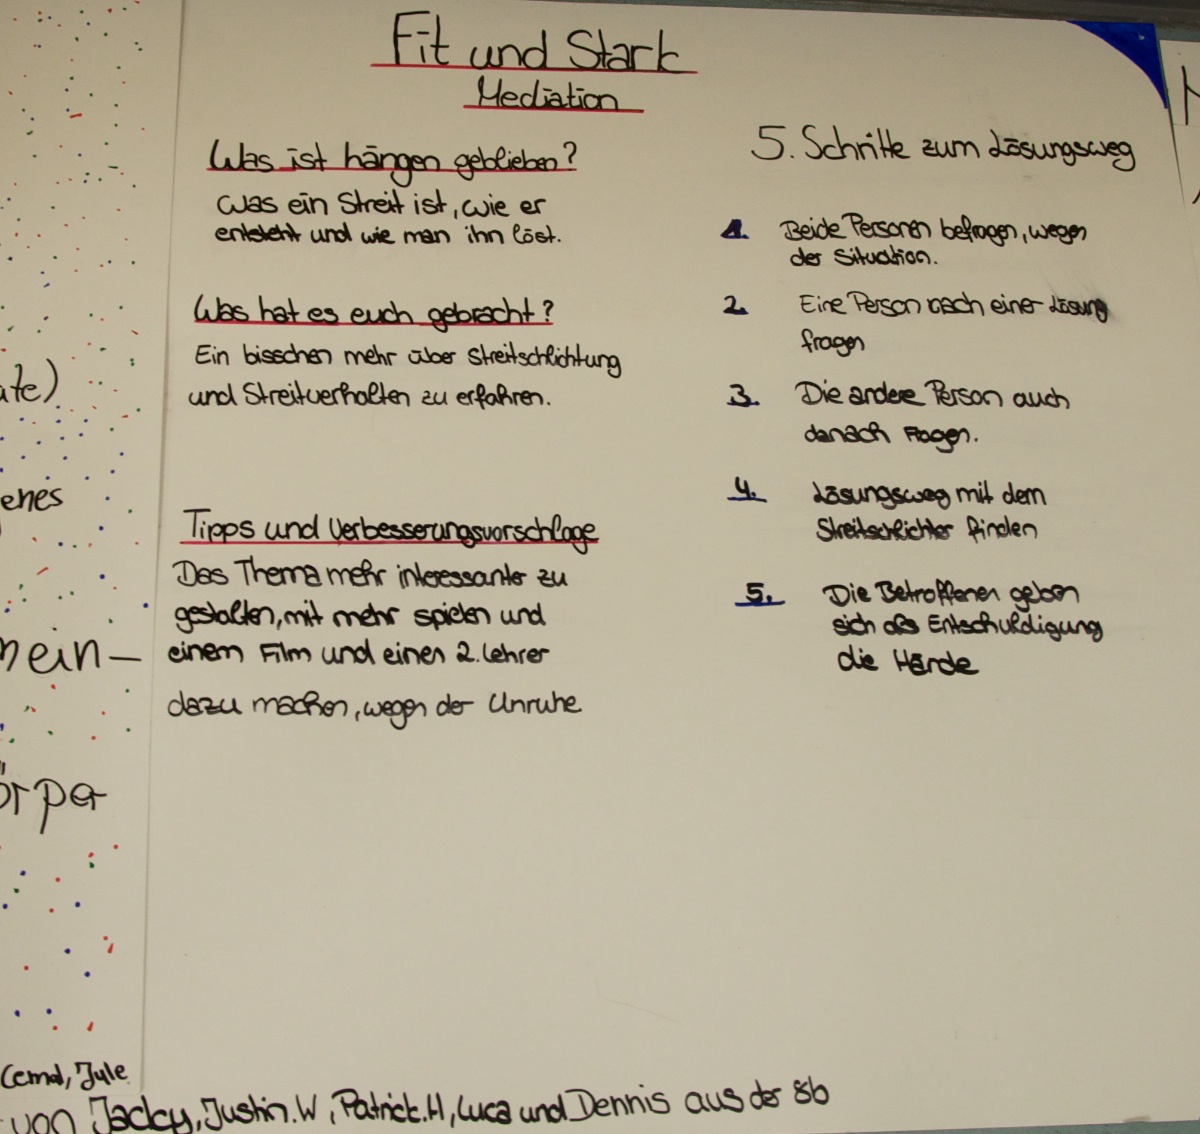 Fit und Stark
Mediation
Was ist hängen geblieben?
Was ein Streit ist, wie er
entsteht und wie man ihn löst.
Was hat es euch gebracht?
Ein bisschen mehr über Streitschlichtung
und Streitverhalten zu erfahren.
Tipps und Verbesserungsvorschläge
Das Thema mehr interessanter zu
gestalten, mit mehr spielen und
einem Film und einen 2. Lehrer
dazu machen, wegen der Unruhe
5. Schritte zum Lösungsweg
1. Beide Personen befragen, wegen
der Situation.
2. Eine Person nach einer Lösung
fragen
3. Die andere Person auch
danach Fragen.
4. Lösungsweg mit dem
Streitschlichter finden
5. Die Betroffenen geben
sich als Entschuldigung
die Hände
enes
örper
Cemal, Jule
von Jacky, Justin.W, Patrick.H, Luca und Dennis aus der 8b